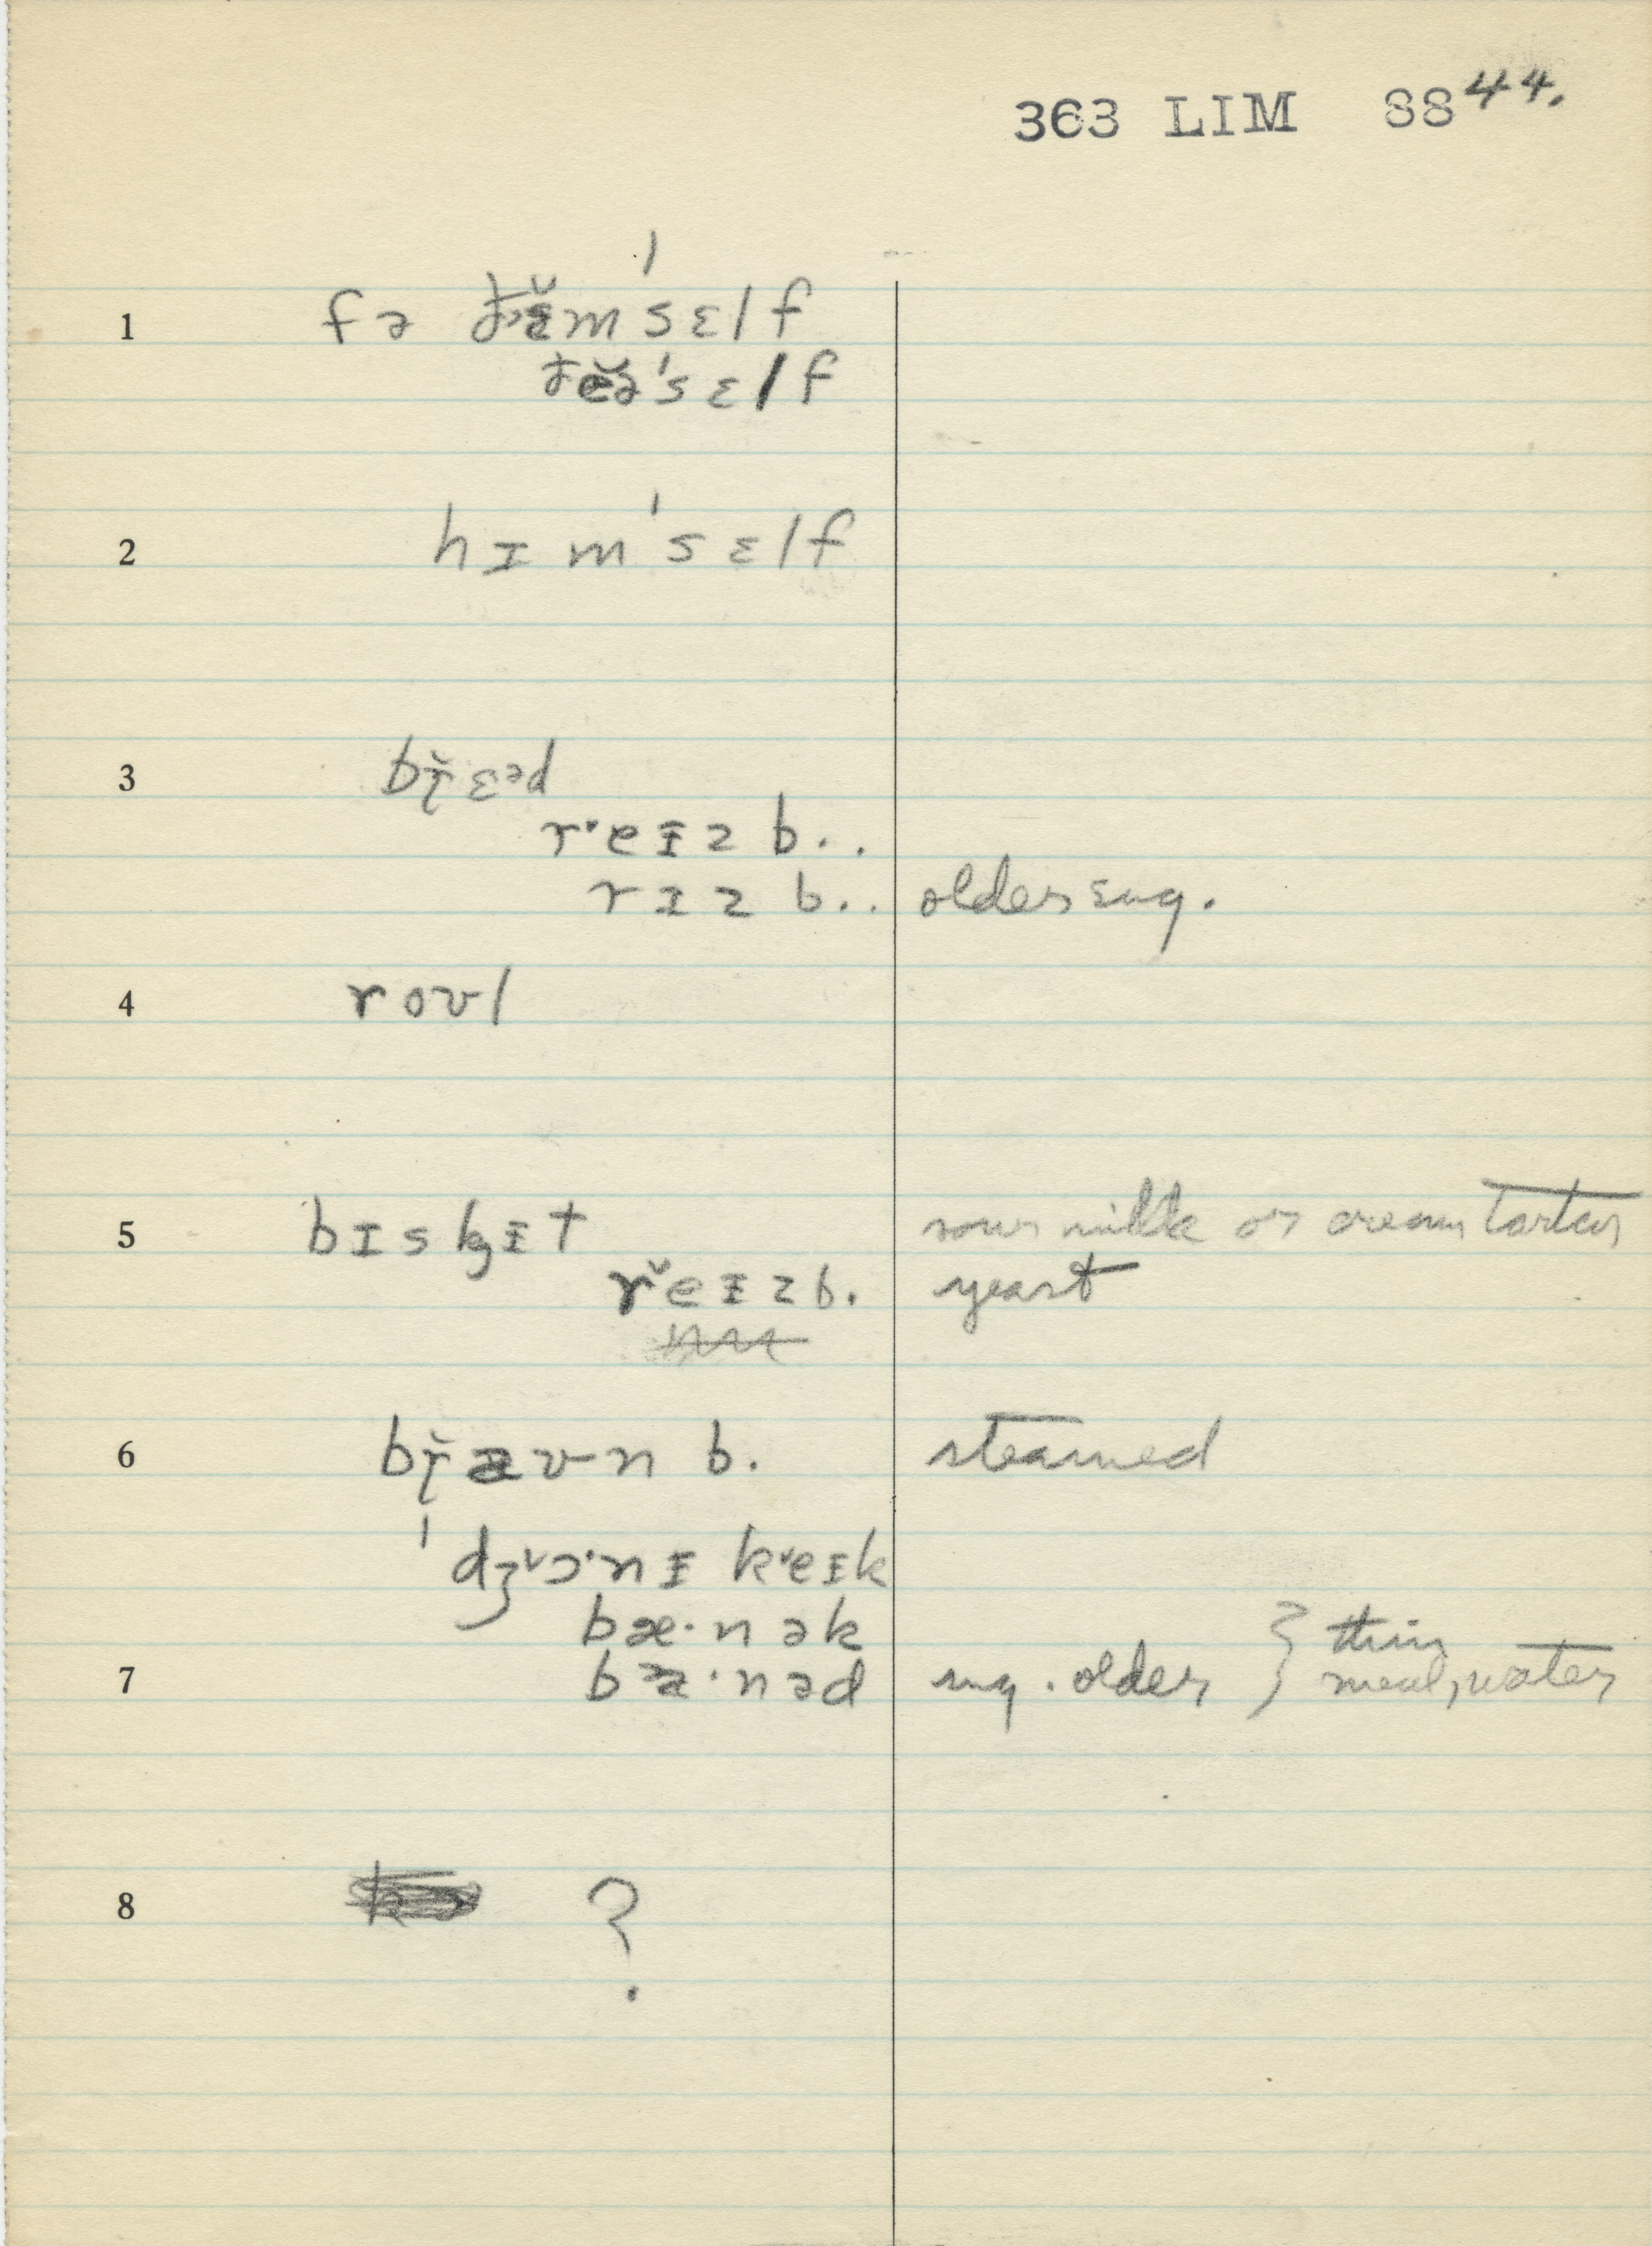 363 LIM 88 44.
1 fə ðɛ̆m'sɛlf
ðĕə'sɛlf
2 hɪm'sɛlf
3 bɽ̆ɛᵊd
r˅eɪz b..
rɪz b.. older sug.
4 roʊl
5 bɪskɪt sour milk or cream tartar
r˅eɪz b. yeast
6 bɽ̆aʊn b. steamed
'dʒ˅ɔ·nɪ k˅eɪk
bæ·nək } thin
7 bæ·nəd sug. older } meal, water
8 ?